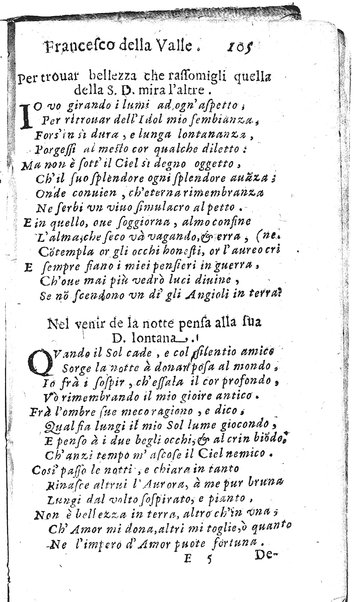 Francesco della Valle. 105
Per trouar bellezza che rassomigli quella
della S. D. mira l'altre.
IO vo girando i lumi ad ogn'aspetto,
Per ritrouar dell'Idol mio sembianza,
Fors'in sì dura, e lunga lontananza,
Porgessi al mesto cor qualche diletto:
Ma non è sott'il Ciel sì degno oggetto,
Ch'il suo splendore ogni splendore auāza;
Onde conuien, ch'eterna rimembranza
Ne serbi vn viuo simulacro al petto.
E in quello, oue soggiorna, almo confine
L'alma, che seco và vagando, & erra, (ne.
Cōtempla or gli occhi honesti, or l'aureo cri
E sempre fiano i miei pensieri in guerra,
Ch'oue mai più vedrò luci diuine,
Se nō scendono vn dì gli Angioli in terra?
Nel venir de la notte pensa alla sua
D. lontana.
QVando il Sol cade, e col silentio amico
Sorge la notte à donar posa al mondo,
Io frà i sospir, ch'essala il cor profondo,
Vò rimembrando il mio gioire antico.
Frà l'ombre sue meco ragiono, e dico,
Qual fia lungi il mio Sol lume giocondo,
E penso à i due begli occhi, & al crin biōdo,
Ch'anzi tempo m'ascose il Ciel nemico.
Così passo le notti, e chiara in tanto
Rinasce altrui l'Aurora, à me pur bruna
Lungi dal volto sospirato, e pianto,
Non è bellezza in terra, altro ch'vna,
Ch'Amor mi dona, altri mi toglie, ò quanto
Ne l'impero d'Amor puote fortuna.
E 5 De-